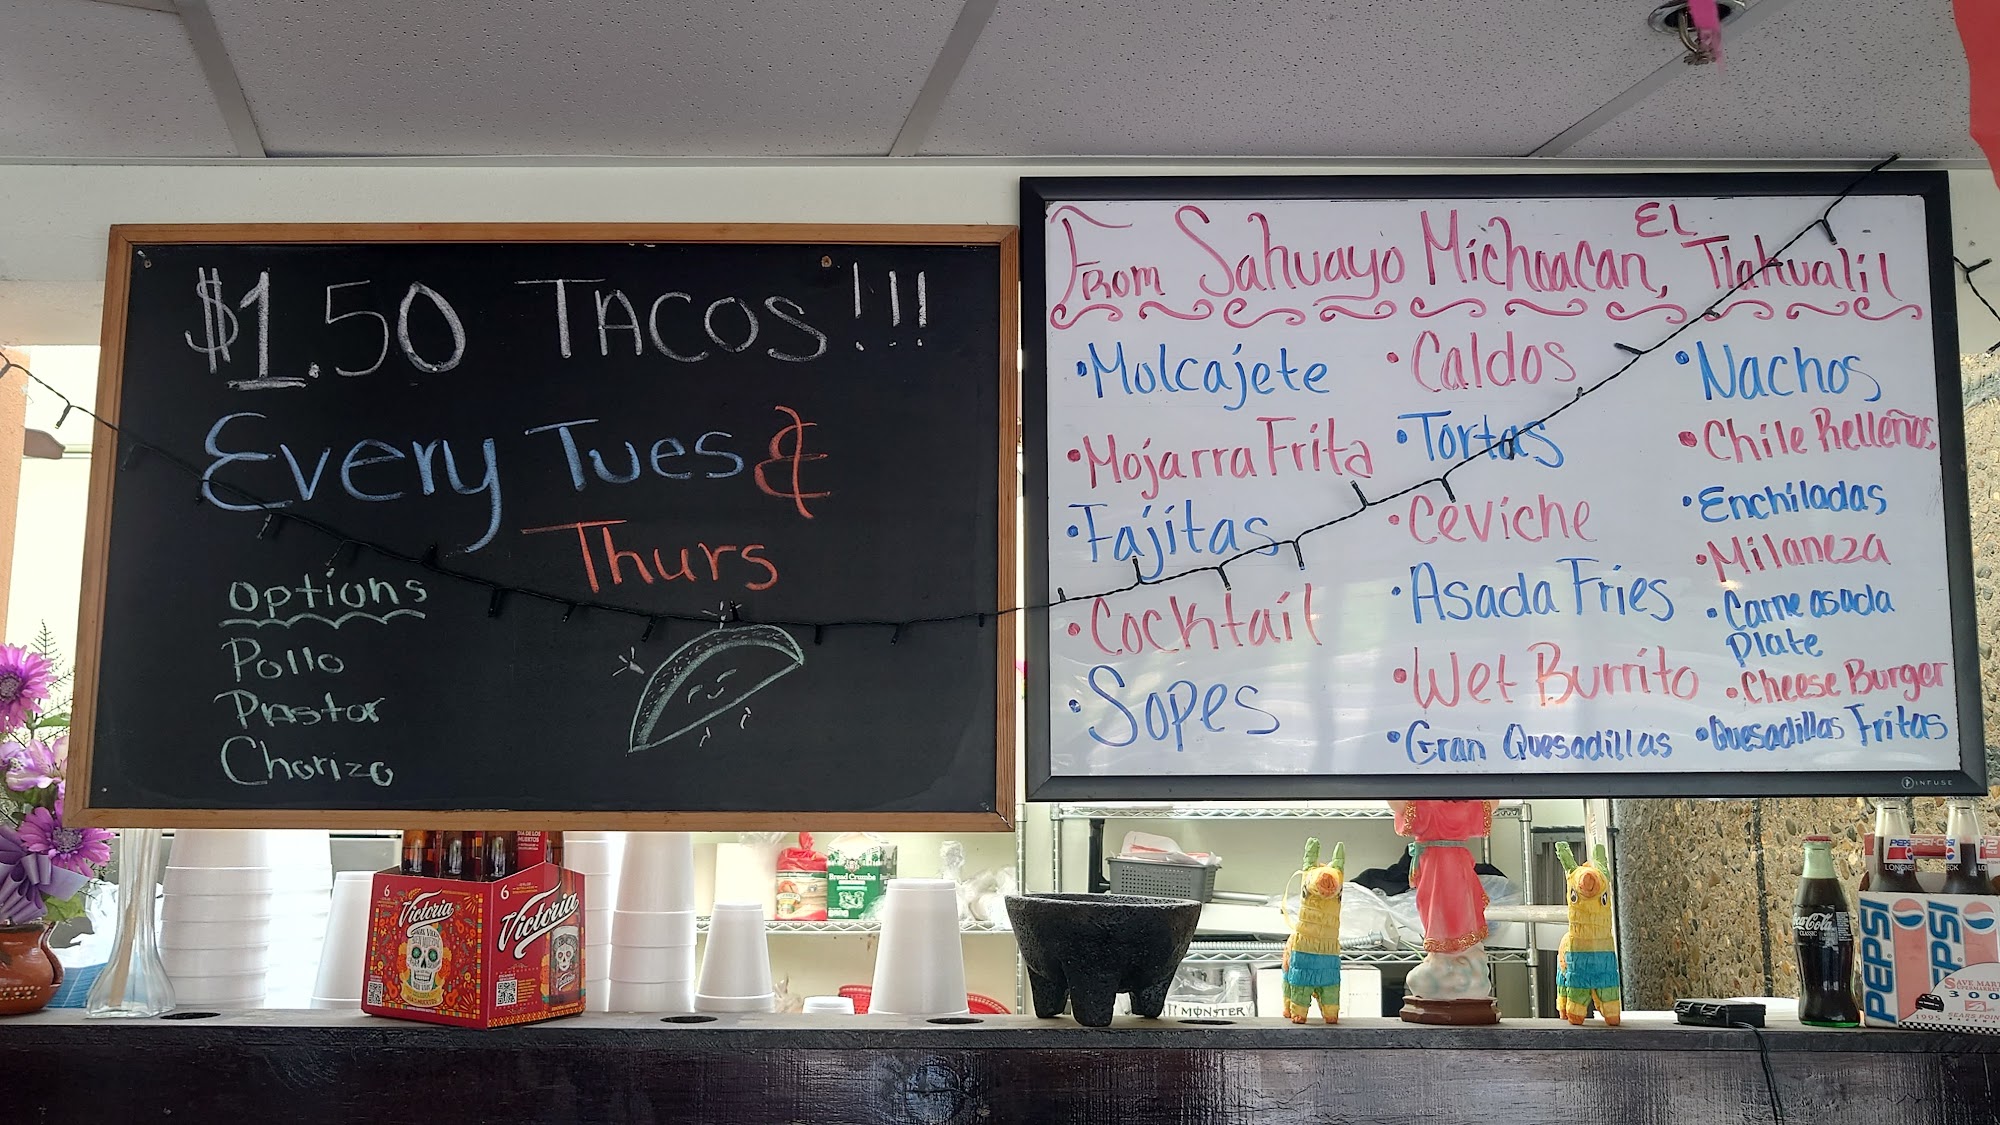 $1.50 TACOS!!!
Every Tues &
Thurs
options
Pollo
Pastor
Chorizo
From Sahuayo Michoacan, EL Tlahualil
• Molcajete
• Mojarra Frita
• Fajitas
• Cocktail
• Sopes
• Caldos
• Tortas
• Ceviche
• Asada Fries
• Wet Burrito
• Gran Quesadillas
• Nachos
• Chile Relleños
• Enchiladas
• Milaneza
• Carne asada
Plate
• Cheese Burger
• Quesadillas Fritas
INFUSE
6
Victoria
6
Victoria
Bread Crumbs
MONSTER
Coca-Cola
CLASSIC
PEPSI-COLA
PEPSI
PEPSI
SAVE MART
SUPERMARKETS
300
1995
SEARS POINT